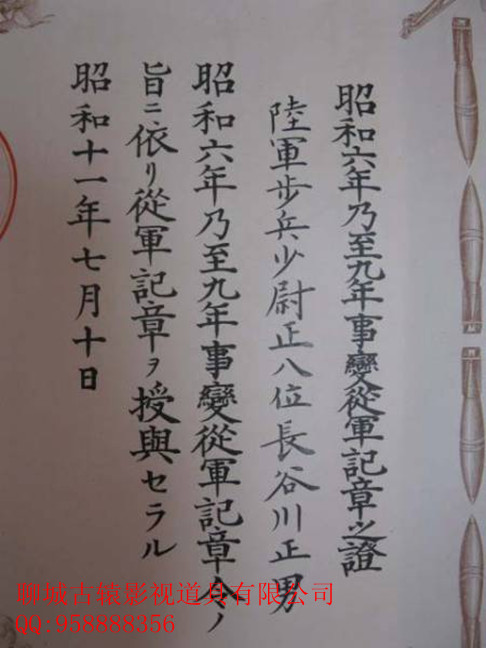 昭和六年乃至九年事變從軍記章之證
陸軍步兵少尉正八位長谷川正男
昭和六年乃至九年事變從軍記章令ノ
旨ニ依リ從軍記章ヲ授與セラル
昭和十一年七月十日
聊城古辕影视道具有限公司
QQ:958888356